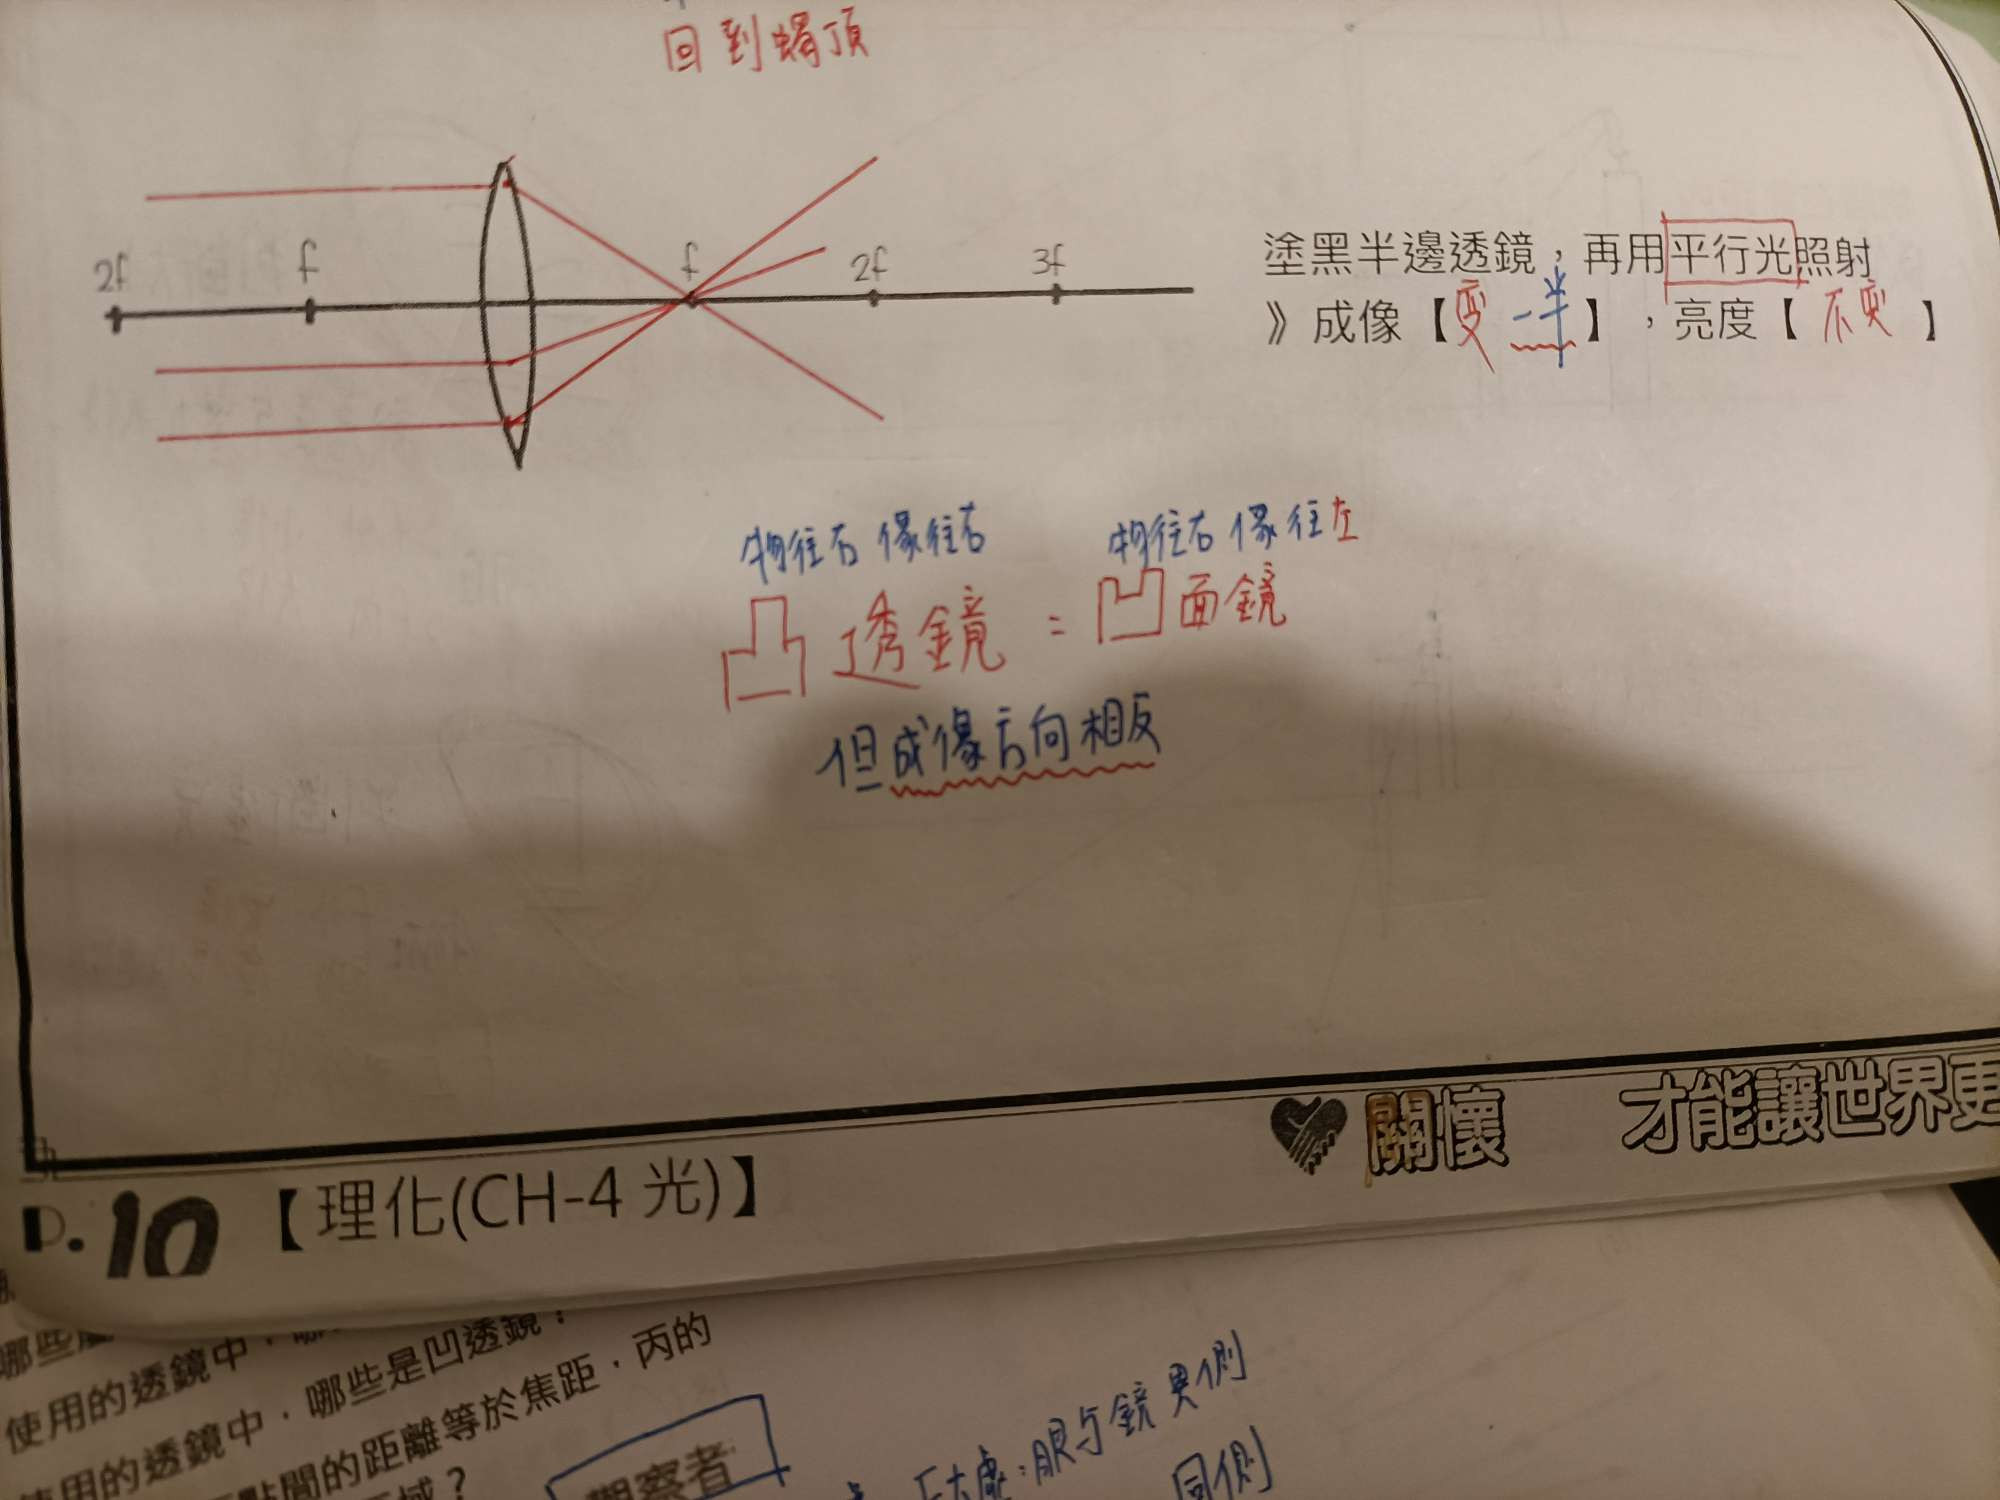 回到蠋頂
2f f f 2f 3f
塗黑半邊透鏡，再用平行光照射
》成像【變一半】，亮度【不變】
物往右 像往右 物往右 像往左
凸透鏡 = 凹面鏡
但成像方向相反
關懷 才能讓世界更
P.10【理化(CH-4 光)】
使用的透鏡中，哪
使用的透鏡中，哪些是凹透鏡？
點間的距離等於焦距，丙的
域？
觀察者
眼與鏡異側
同側